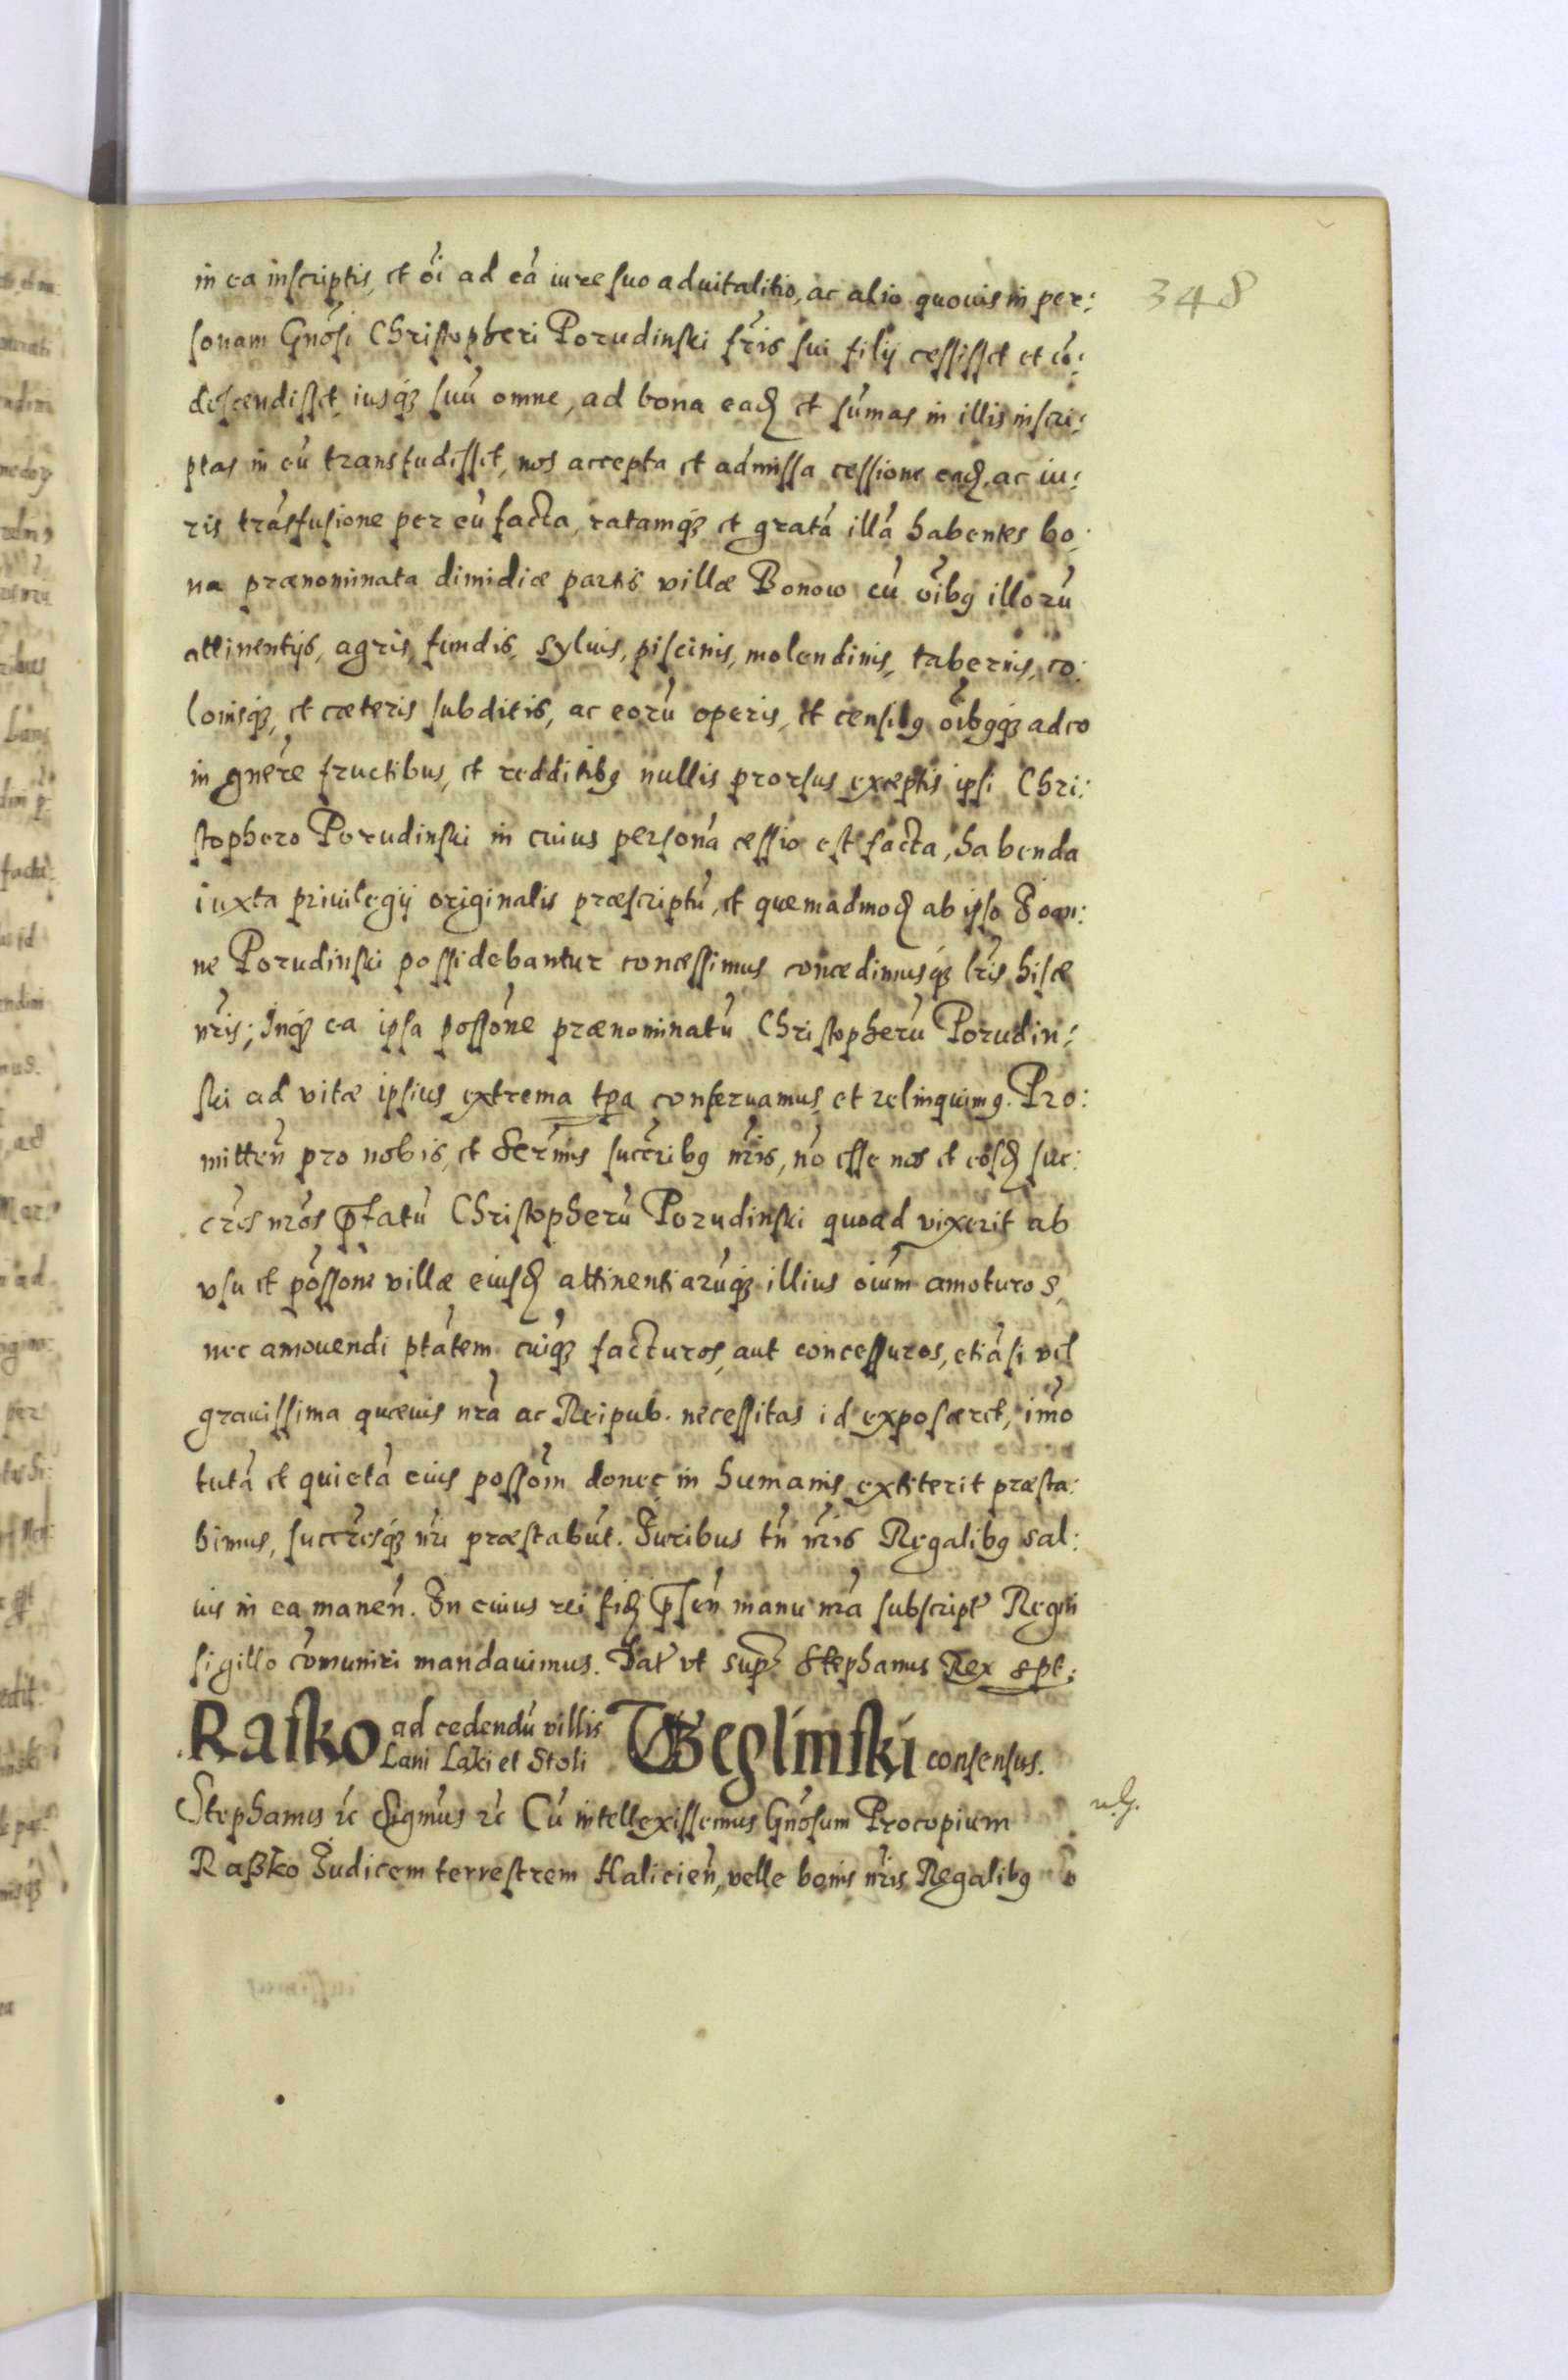 348
in ea inscriptis, et oı̃ ad eã iure suo aduitalitio, ac alio quouis in per:
sonam Gnõsi Christopheri Porudinski fr̃is sui filij cessisset et cõ:
descendisset, iusq́ꝫ suũ omne, ad bona eadꝫ et sum̃as in illis inscri:
ptas in eũ transfudisset, nos accepta et admissa cessione eadꝫ, ac iu:
ris trãsfusione per eũ facta, ratamq́ꝫ et gratã illã habentes bo:
na prænominata dimidiæ partis villæ Bonow cũ oı̃bꝰ illorũ
attinentijs, agris, fundis, syluis, piscinis, molendinis, tabernis, co:
lonisq́ꝫ, et cæteris subditis, ac eorũ operis, et censibꝰ oı̃bꝰq́ꝫ adeo
in gnẽre fructibus, et redditibꝰ nullis prorsus exceptis ipsi Chri:
stophero Porudinski in cuius personã cessio est facta, habenda
iuxta priuilegij originalis præscriptũ, et quemadmodꝫ ab ipso Joan:
ne Porudinski possidebantur concessimus concedimusq́ꝫ lr̃is hisce
nr̃is; Inq́ꝫ ea ipsa possõne prænominatũ Christopherũ Porudin:
ski ad vitæ ipsius extrema tp̃a conseruamus, et relinquimꝰ. Pro:
mitteñ pro nobis, et Serm̃is succr̃ibꝰ nr̃is, nõ esse nos et eosdꝫ suc:
cr̃es nr̃os p̃fatũ Christopherũ Porudinski quoad vixerit ab
vsu et possõne villæ eiusdꝫ attinentiarũq́ꝫ illius oı̃um amoturos,
nec amouendi ptãtem cuiq́ꝫ facturos, aut concessuros, etiã si vel
grauissima quæuis nr̃a ac Reipub. necessitas id exposceret, imõ
tutã et quietã eius possõm donec in humanis extiterit præsta:
bimus, succr̃esq́ꝫ nr̃i præstabũt. Juribus tñ nr̃is Regalibꝰ sal:
uis in ea maneñ. In cuius rei fidꝫ p̃señ manu nr̃a subscript̃ Regni
sigillo com̃uniri mandauimus. Dat̃ vt sup̃. Stephanus Rex spt:
Rasko ad cedendũ villis Lani Laki et Stoli Wßeglinski consensus.
Stephanus ꝛc̃ Sigm̃us ꝛc̃ Cũ intellexissemus Gnõsum Procopium
Raßko Judicem terrestrem Halicień, velle bonis nr̃is Regalibꝰ